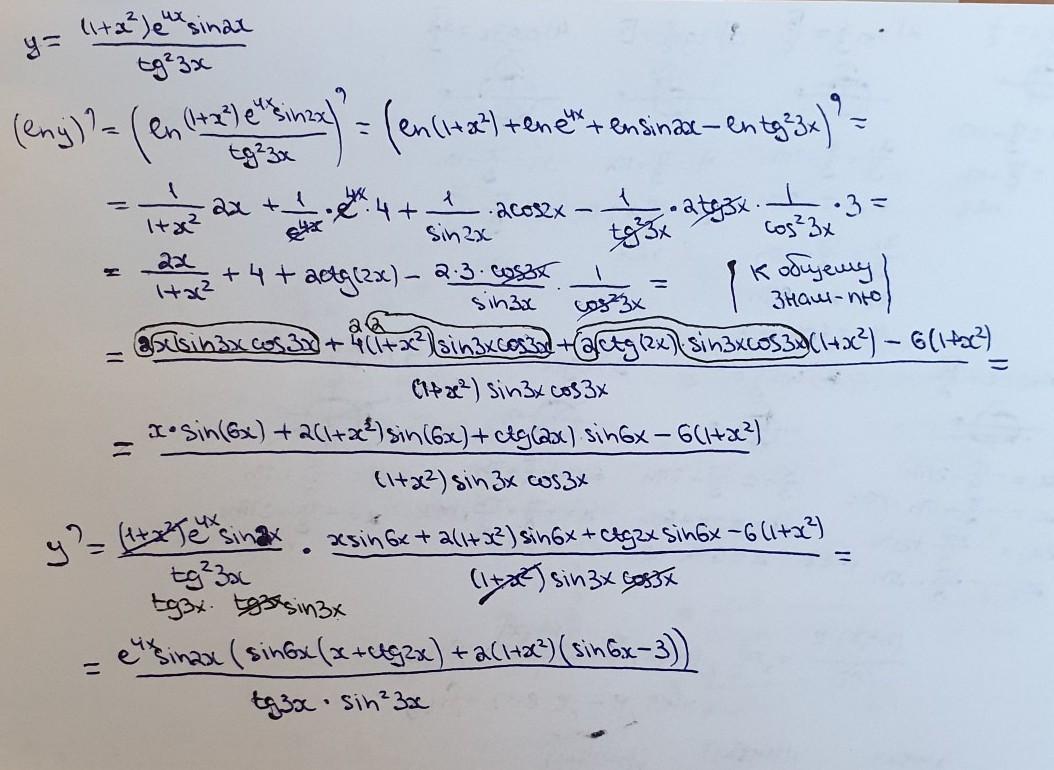 y = ((1+x²)e⁴ˣsin2x)/(tg²3x)
(ln y)' = (ln ((1+x²)e⁴ˣsin2x)/(tg²3x))' = (ln(1+x²) + ln e⁴ˣ + ln sin2x − ln tg²3x)' =
= 1/(1+x²) 2x + 1/e⁴ˣ · e⁴ˣ · 4 + 1/(sin2x) · 2cos2x − 1/(tg²3x) · 2tg3x · 1/(cos²3x) · 3 =
= 2x/(1+x²) + 4 + 2ctg(2x) − (2·3·cos3x)/(sin3x) · 1/(cos²3x) = | к общему знам-лю |
= (2x(sin3x cos3x) + 4(1+x²)(sin3x cos3x) + 2ctg(2x)·sin3x cos3x(1+x²) − 6(1+x²))/((1+x²) sin3x cos3x) =
= (x·sin(6x) + 2(1+x²)sin(6x) + ctg(2x) sin6x − 6(1+x²))/((1+x²) sin3x cos3x)
y' = ((1+x²)e⁴ˣ sin2x)/(tg²3x) · (x sin6x + 2(1+x²)sin6x + ctg2x sin6x − 6(1+x²))/((1+x²) sin3x cos3x) =
tg3x · tg3x sin3x
= (e⁴ˣ sin2x (sin6x(x+ctg2x) + 2(1+x²)(sin6x−3)))/(tg3x · sin²3x)